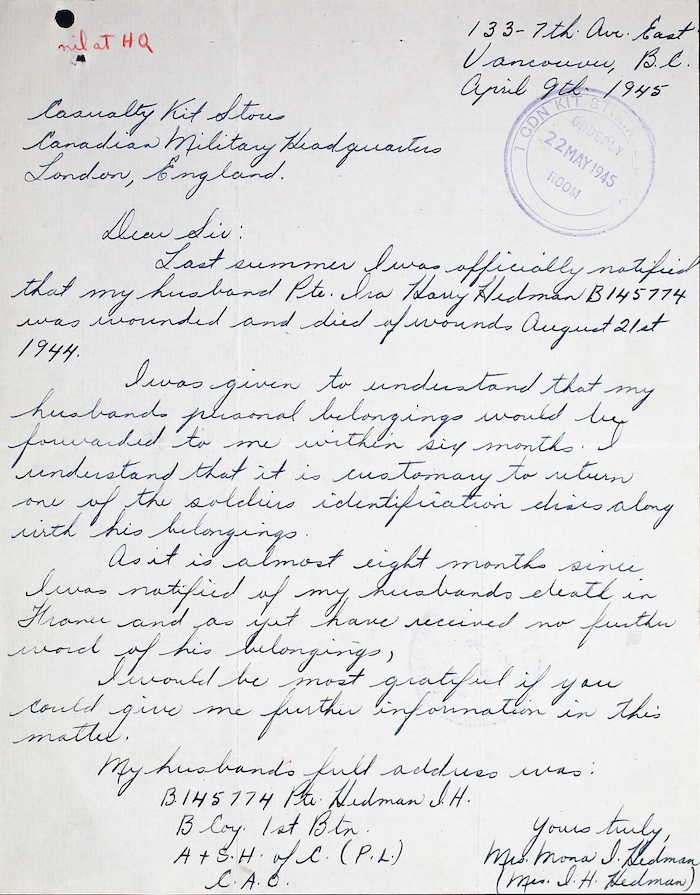 nil at HQ
133-7th. Ave. East
Vancouver, B.C.
April 9th. 1945
1 CDN KIT
ORDERLY
22 MAY 1945
ROOM
Casualty Kit Stores
Canadian Military Headquarters
London, England.
Dear Sir:
Last summer I was officially notified
that my husband Pte. Ira Harry Hedman B145774
was wounded and died of wounds August 21st
1944.
I was given to understand that my
husbands personal belongings would be
forwarded to me within six months. I
understand that it is customary to return
one of the soldiers identification discs along
with his belongings.
As it is almost eight months since
I was notified of my husbands death in
France and as yet have received no further
word of his belongings,
I would be most grateful if you
could give me further information in this
matter.
My husbands full address was:
B145774 Pte. Hedman I.H.
B Coy. 1st Btn.
A + S.H. of C. (P.L.)
C.A.O.
Yours truly,
Mrs. Mona I. Hedman
(Mrs. I. H. Hedman)